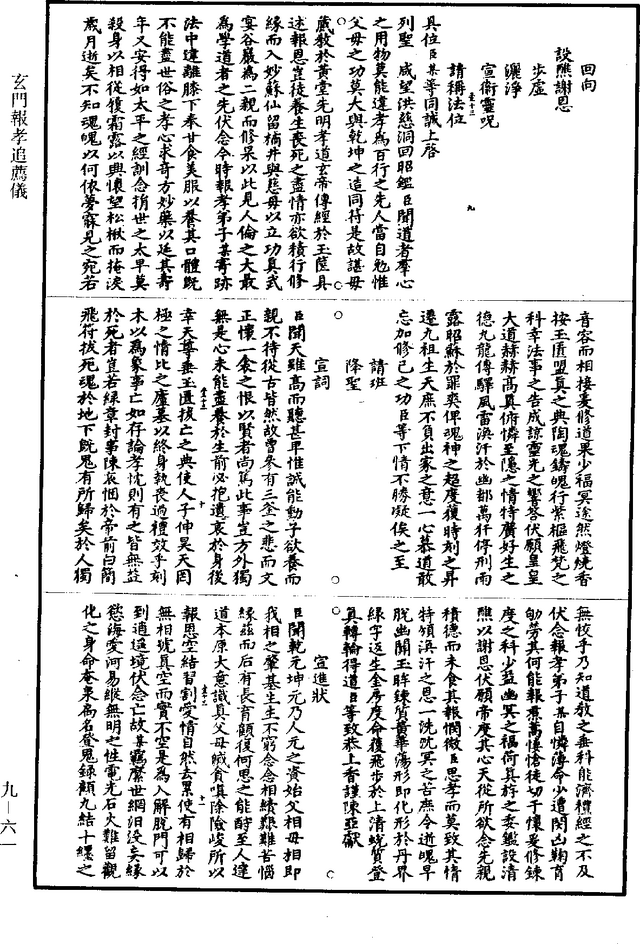 玄門報孝追薦儀
回向
設醮謝恩
步虛
灑淨
宣衛靈呪
請稱法位
具位臣某等同誠上啓
列聖　咸望洪慈洞回昭鑑臣聞道者羣心
之用物莫能違孝為百行之先人當自勉惟
父母之功莫大與乾坤之造同符是故諶母
藏教於黃堂先明孝道玄帝傳經於玉篋具
述報恩豈徒養生喪死之盡情亦欲積行修
緣而入妙蘇仙留橘井與慈母以立功真武
宴谷巖為二親而修果以此見人倫之大最
為學道者之先伏念今時報孝弟子某寄跡
法中違離膝下奉甘食美服以養其口體既
不能盡世俗之孝心求奇方妙藥以延其壽
年又安得如太平之經訓念捐世之太早莫
殺身以相從履霜露以興懷望松楸而掩淚
歲月逝矣不知魂魄以何依夢寐見之宛若
音容而相接爰修道果少福冥途然燈燒香
按玉匱盟真之典陶魂鑄魄行紫樞飛梵之
科幸法事之告成諒靈光之響答伏願皇皇
大道赫赫高真俯憐至隱之情特廣好生之
德九龍傳驛風雷渙汗於幽都萬犴停刑雨
露昭蘇於罪爽俾魂神之超度獲時刻之昇
遷九祖生天庶不負出家之意一心慕道敢
忘加修己之功臣等下情不勝凝俟之至
請班
降聖
宣詞
臣聞天雖高而聽甚卑惟誠能動子欲養而
親不待從古皆然故曾參有三釜之悲而文
正懷一衾之恨以賢者尚篤此事豈方外獨
無是心未能盡養於生前必抱遺哀於身後
幸天尊垂玉匱拔亡之典使人子伸昊天罔
極之情比之廬墓以終身執喪過禮效乎刻
木以為象事亡如存論孝忱則有之皆無益
於死者豈若綠章封事陳哀悃於帝前白簡
飛符拔死魂於地下既鬼有所歸矣於人獨
無恔乎乃知道教之無科能濟禮經之不及
伏念報孝弟子某自憐薄命少遭閔凶鞠育
劬勞其何能報焄蒿悽愴徒切于懷爰修鍊
度之科少益幽冥之福荷真斿之委鑑設清
醮以謝恩伏願帝度其心天從所欲念先親
積德而未食其報憫微臣思孝而莫致其情
特頒渙汗之恩一洗沉冥之苦庶令逝魄早
脫幽關玉眸鍊質黃華蕩形即化形於丹界
綠字返生金房度命獲飛步於上清蛻質登
真轉輪得道臣等敢恭上香謹陳亞獻
宣進狀
臣聞乾元坤元乃人元之資始父相母相即
我相之肇基生生不窮念念相續艱難苦惱
緣茲而后有長育顧復何思之能酬至人達
道本原大意識真父母緘貪嗔除險峻所以
報恩空結習割愛情自然去累使有相歸於
無相號真空而實不空是為入解脫門可以
到逍遙境伏念亡故某羈縻世網汨沒妄緣
慾海愛河易縱無明之性電光石火難留觀
化之身命庵泉扃名登鬼錄顧九結十纏之
九－六一